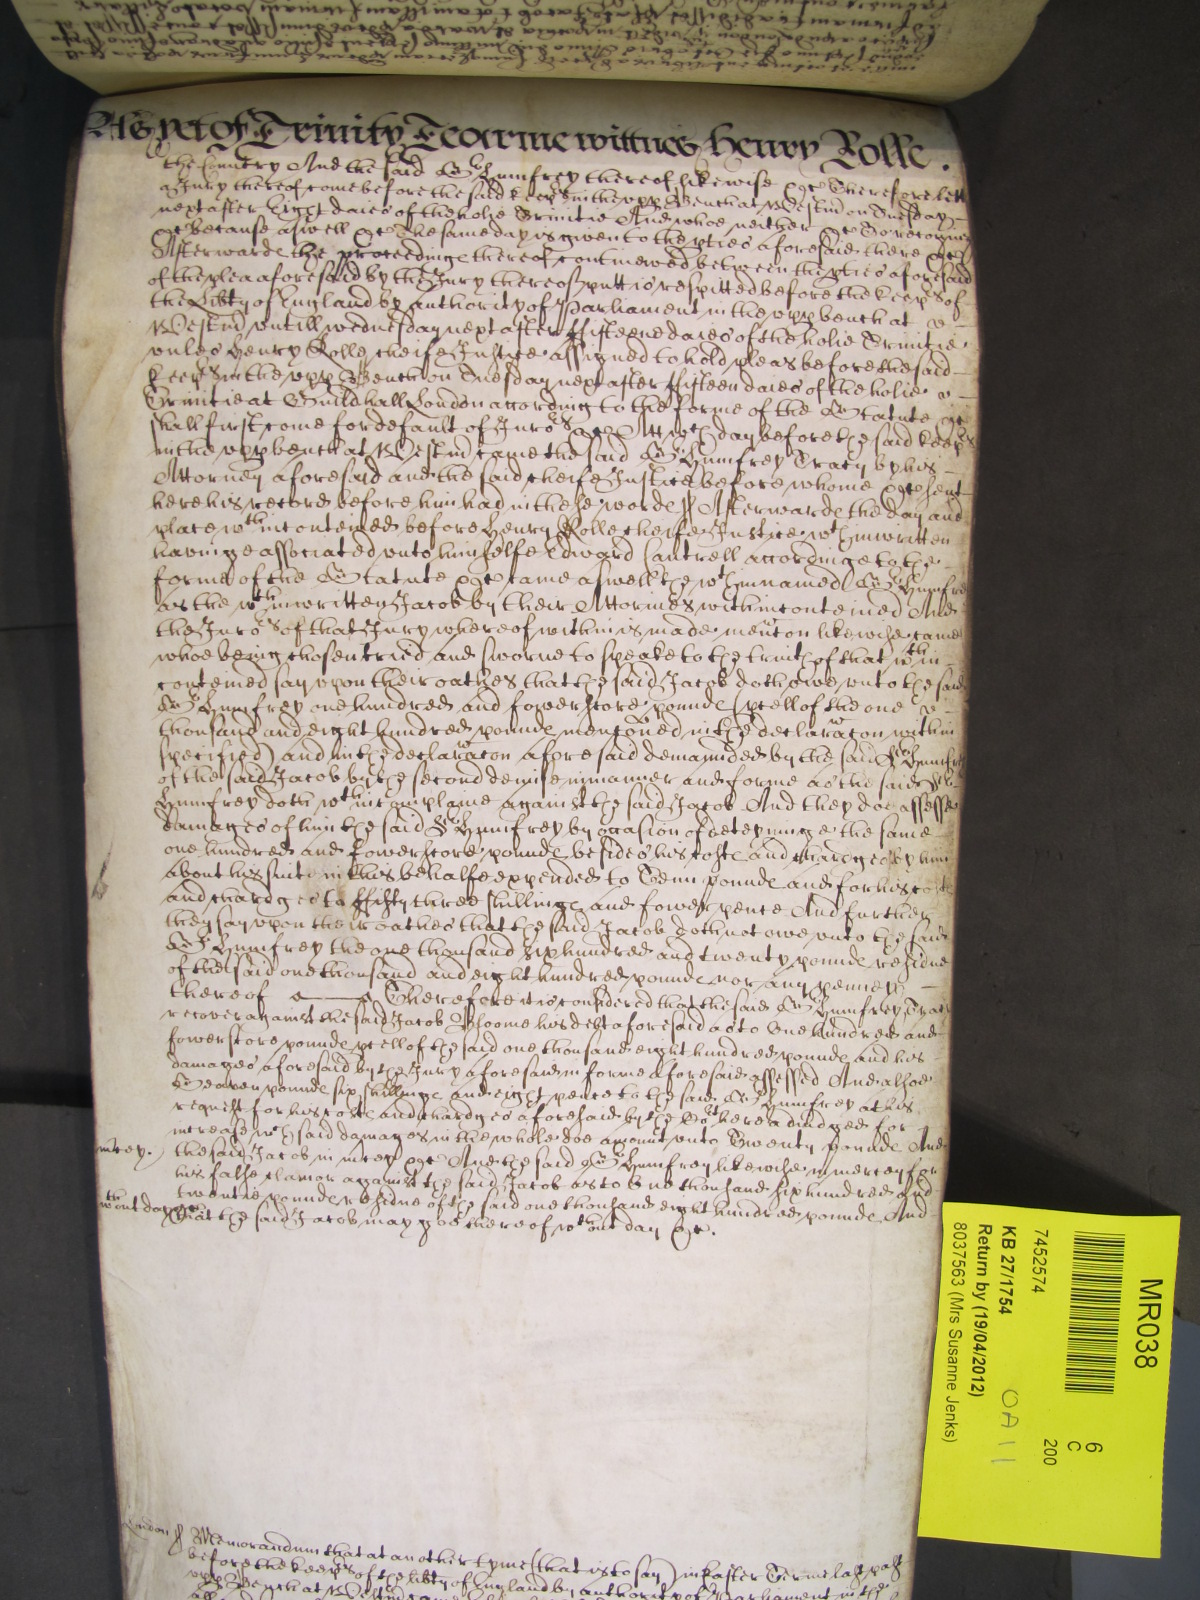 As yet of Trinity Tearme wittnes Henry Rolle .
the Countrey And the said Sr Humfrey thereof likewise &c Therefore lett
a Jury thereof come before the said keeps in the upp Bench at Westm on Tuesday
next after Eight daies of the holie Trinitie And whoe neither &c To recognize
&c Because aswell &c The same day is given to the pties aforesaid there &c
Afterwards the proceedinge thereof continewed betweene the pties aforesaid
of the plea aforesaid by the Jury thereof putt is respitted before the keeps of
the Libty of England by authority of Parliament in the upp bench at
Westm untill wednesday next after fifteene daies of the holie Trinitie
unles Henry Rolle cheife Justice assigned to hold pleas before the said
keeps in the upp Bench on Tuesday next after fifteen daies of the holie
Trinitie at Guildhall London according to the forme of the Statute &c
shall first come for default of Juro's &c Att wch day before the said keeps
in the upp bench at Westm came the said Sr Humfrey Tracy by his
Attorney aforesaid and the said cheife Justice before whome &c sent
here his record before him had in these words ss Afterwards the day and
place wthin conteined before Henry Rolle cheife Justice wthin written
havinge associated unto himselfe Edward Cantrell accordinge to the
forme of the Statute &c came aswell the wthin named Sr Humfrey
as the wthin written Jacob by their Attornies within conteined And
the Juro's of that Jury whereof within is made mencon likewise came
whoe being chosen tried and sworne to speake to the truith of that wthin
conteined say upon their oathes that the said Jacob doth owe unto the said
Sr Humfrey one hundred and fower score pounds (pcell of the one
thousand and eight hundred pounds menconed in the declaracon within
specified) and in the declaracon aforesaid demaunded by the said Sr Humfrey
of the said Jacob by the second demise in manner and forme as the said Sr
Humfrey doth wthin complaine against the said Jacob And they doe assesse
damages of him the said Sr Humfrey by occasion of deteyninge the same
one hundred and fower score pounds besides his costs and chardges by him
about his suite in this behalfe expended to Tenn pounds and for his costs
and chardges to fifty three shillings and fower pence And further
they say upon their oathes that the said Jacob doth not owe unto the said
Sr Humfrey the one thousand six hundred and twenty pounds residue
of the said one thousand and eight hundred pounds nor any penney
thereof Therefore it is considered that the said Sr Humfrey Tracy
recover against the said Jacob Bloome his debt aforesaid as to One hundred and
fower score pounds pcell of the said one thousand eight hundred pounds and his
damages aforesaid by the Jury aforesaid in forme aforesaid assessed And alsoe
Seaven pounds six shillings and eight pence to the said Sr Humfrey at his
request for his costs and chardges aforesaid by the Cort here adiudged for
increase wch said damages in the whole doe amount unto Twenty pounds And
mrcy. the said Jacob in mrcy &c And the said Sr Humfrey likewise in mercy for
his false clamor against the said Jacob as to One thousand six hundred and
twentie pounds residue of the said one thousand eight hundred pounds And
wthout day that the said Jacob may goe thereof wthout day &c.
London ss Memorandum that at another tyme (that is to say) in Easter Terme last past
before the keeps of the libty of England by authority of Parliament in the
upp Bench at Westm came
MR038
7452574
KB 27/1754
Return by (19/04/2012)
8037563 (Mrs Susanne Jenks)
6
C
200
OA11